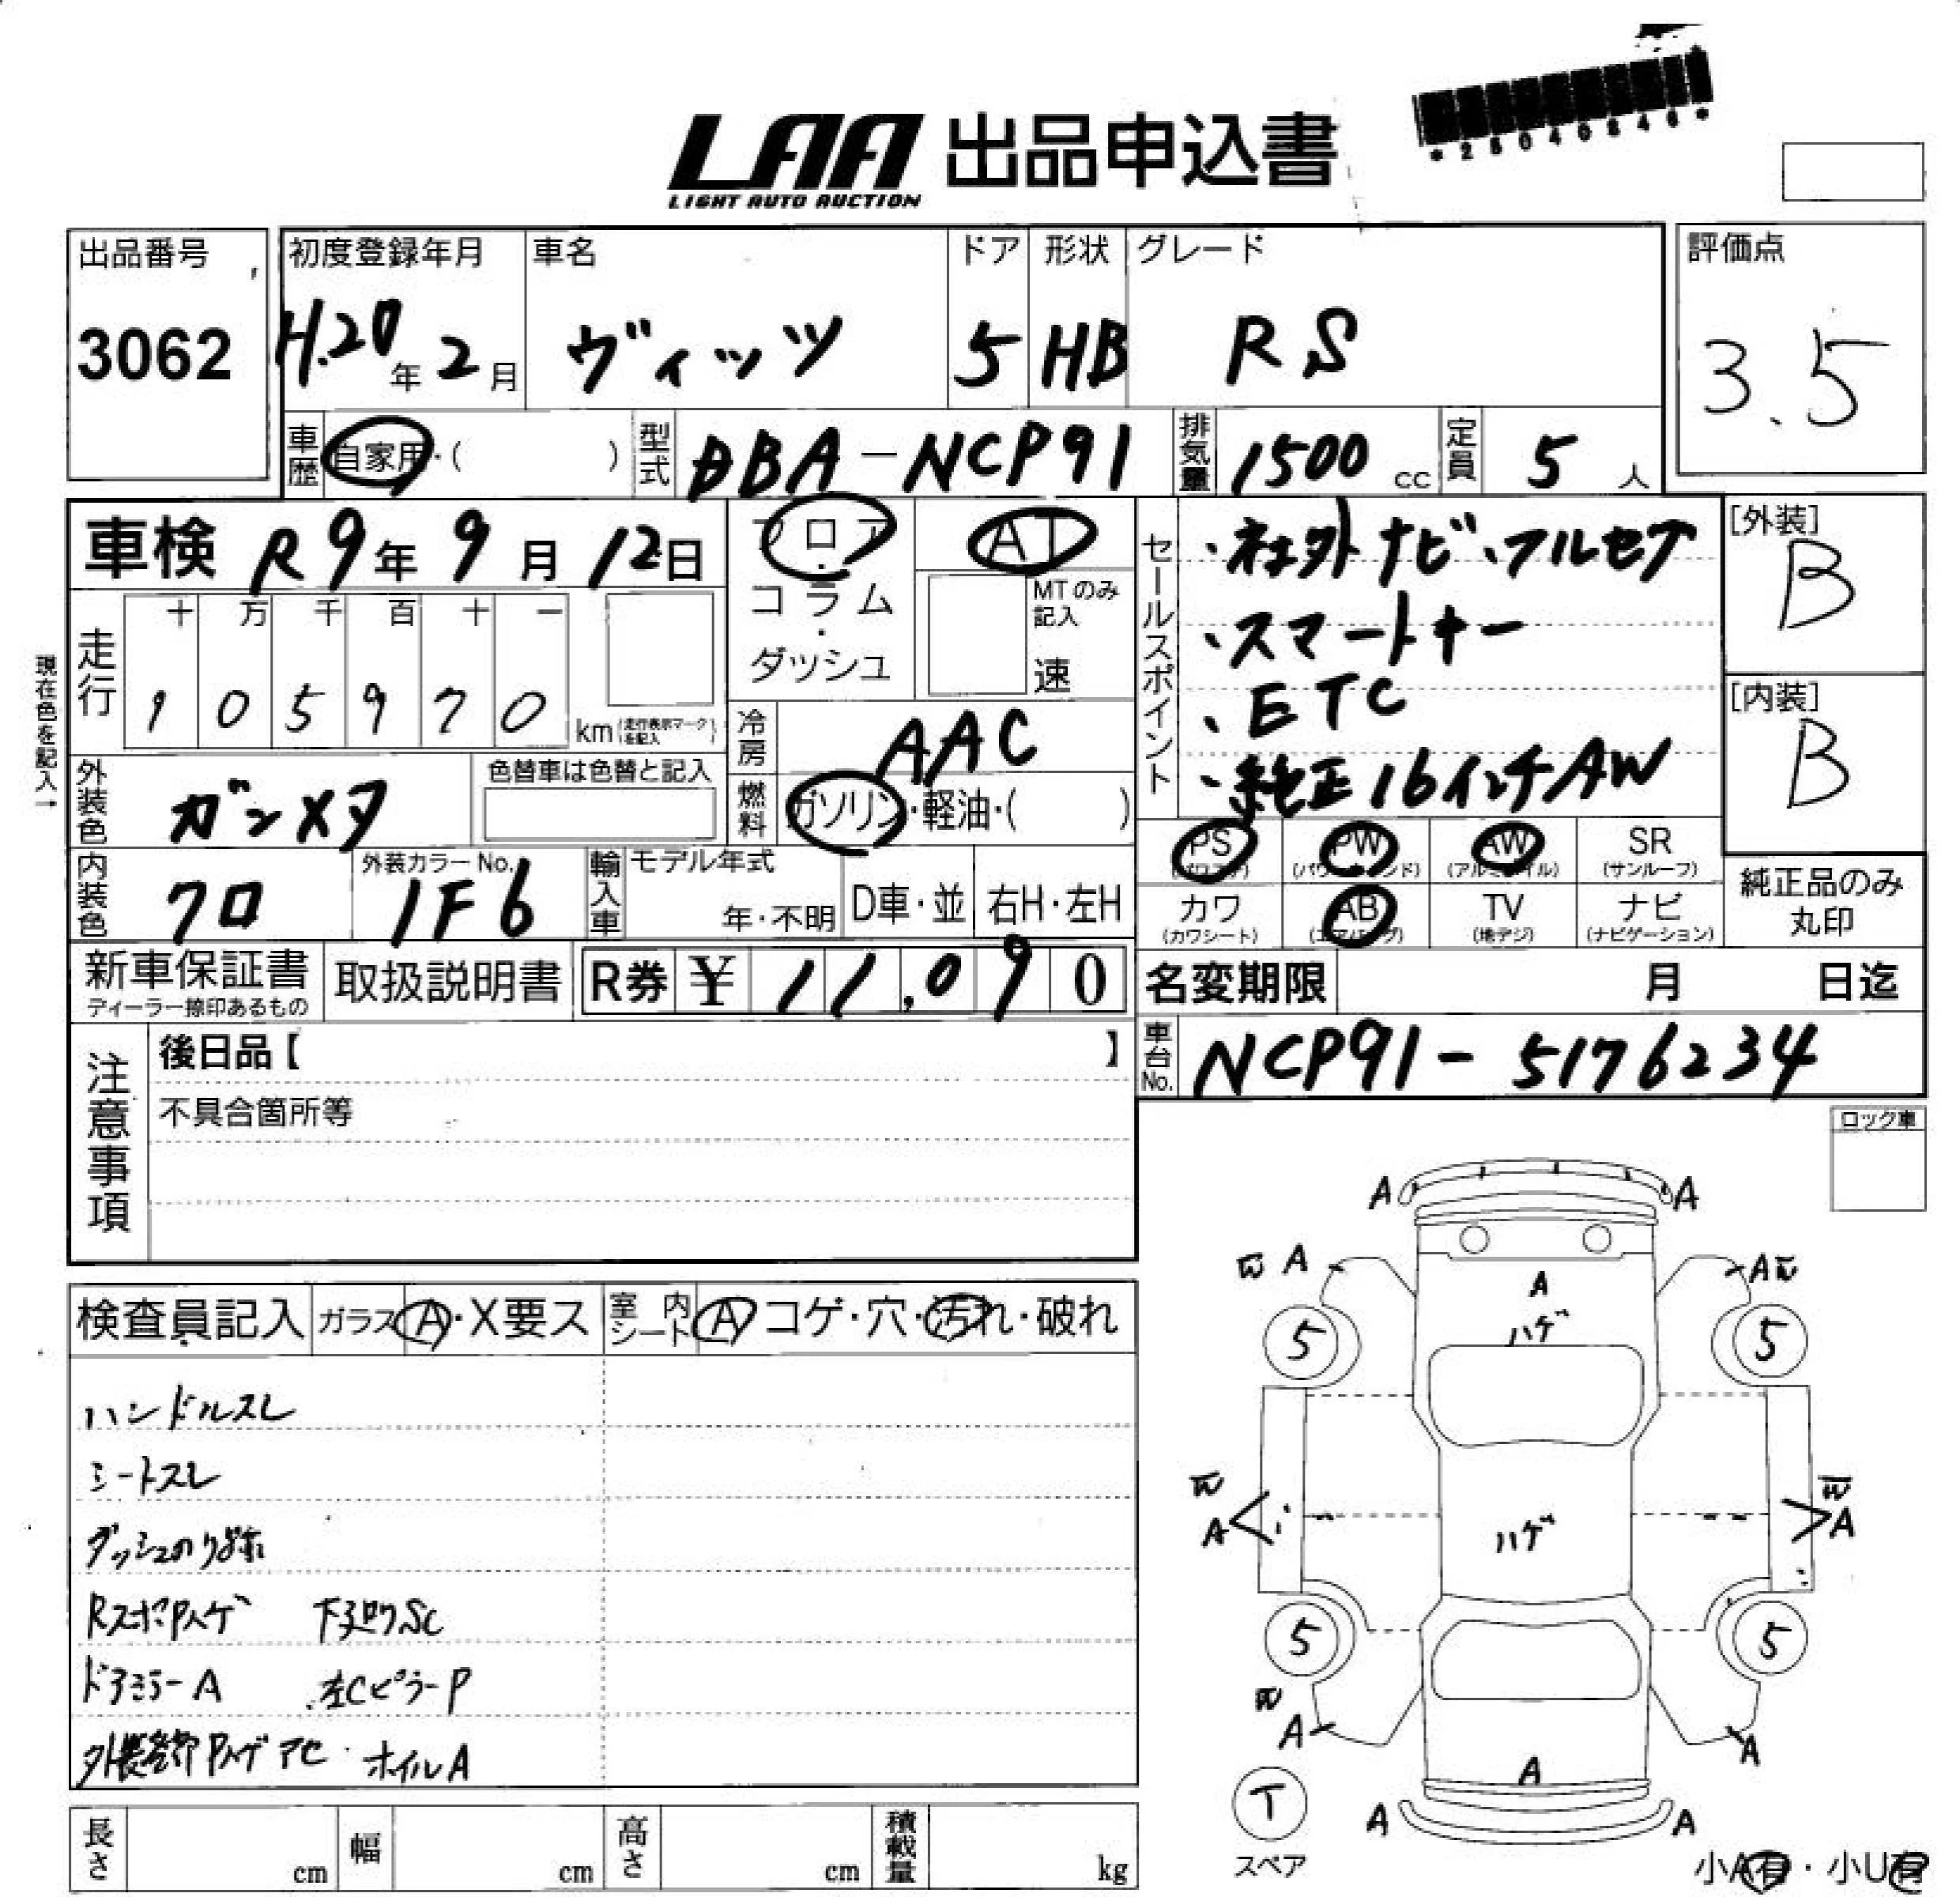 LAA 出品申込書
LIGHT AUTO AUCTION
*28040846*
出品番号
3062
初度登録年月
H.20年2月
車名
ヴィッツ
ドア
5
形状
HB
グレード
RS
評価点
3.5
車歴
自家用・( )
型式
DBA-NCP91
排気量
1500cc
定員
5人
車検 R9年9月12日
フロア・コラム・ダッシュ
AT
MTのみ記入
速
セールスポイント
・社外ナビ、フルセグ
・スマートキー
・ETC
・純正16インチAW
[外装]
B
[内装]
B
現在色を記入→
走行
十 万 千 百 十 一
1 0 5 9 7 0 km(走行表示マークを記入)
冷房
AAC
外装色
ガンメタ
色替車は色替と記入
燃料
ガソリン・軽油・( )
内装色
クロ
外装カラーNo.
1F6
輸入車
モデル年式
年・不明
D車・並
右H・左H
PS (パワステ)
PW (パワーウィンド)
AW (アルミホイル)
SR (サンルーフ)
カワ (カワシート)
AB (エアバッグ)
TV (地デジ)
ナビ (ナビゲーション)
純正品のみ丸印
新車保証書
ディーラー捺印あるもの
取扱説明書
R券 ¥ 11,090
名変期限 月 日迄
車台No.
NCP91-5176234
注意事項
後日品【 】
不具合箇所等
ロック車
検査員記入
ガラス A・X要ス
室内シート A コゲ・穴・汚れ・破れ
ハンドルスレ
シートスレ
ダッシュのり跡
RスポPハゲ 下廻りSC
ドアミラーA 左CピラーP
外装各部Pハゲアセ ホイルA
A A
W A A W
A
ハゲ
5 5
W W
A A
ハゲ
5 5
W
A A
A
T
スペア
A A
小A有・小U有
長さ cm
幅 cm
高さ cm
積載量 kg